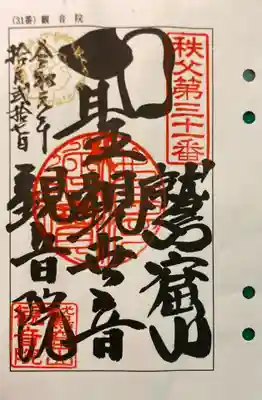 (31番) 観音院
秩父第三十一番
鷲窟山
聖観世音
観音院
令和元年
拾月弐拾七日